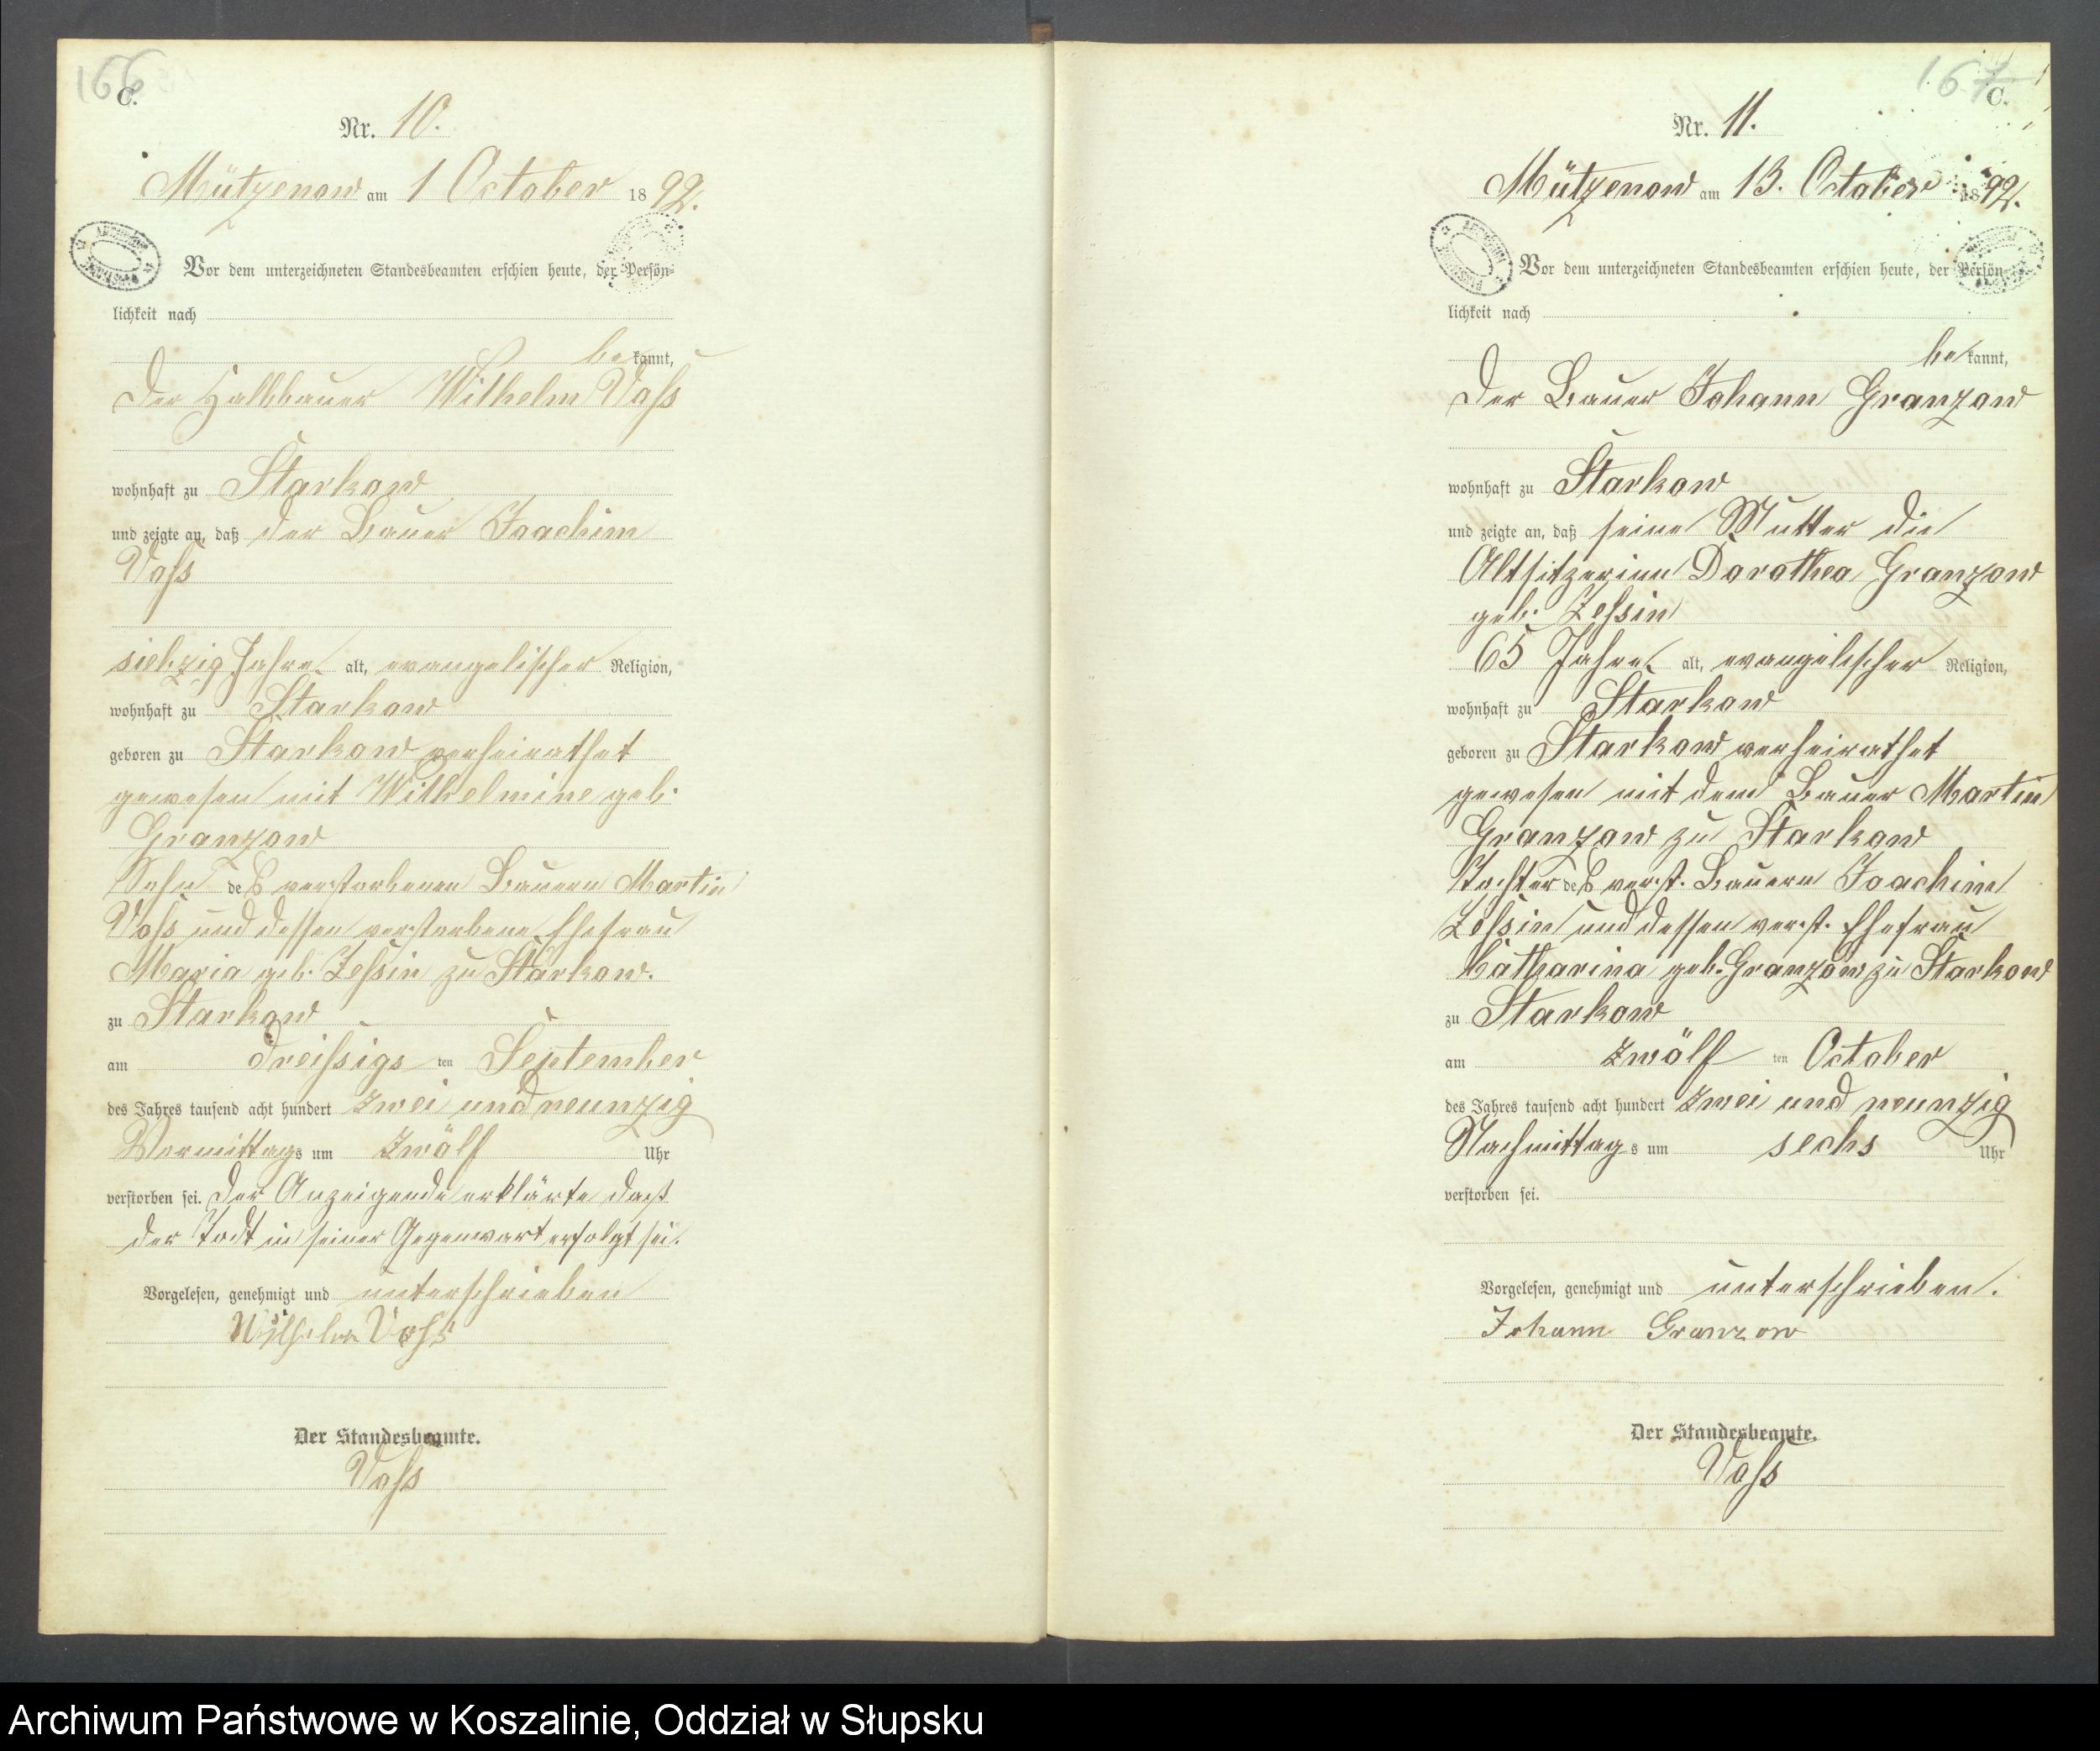 166
C.
Nr. 10.
Mützenow am 1 October 1892.
Vor dem unterzeichneten Standesbeamten erschien heute, der Persön-
lichkeit nach
bekannt,
der Halbbauer Wilhelm Voss
wohnhaft zu Starkow
und zeigte an, daß der Bauer Joachim
Voss
siebzig Jahre alt, evangelischer Religion,
wohnhaft zu Starkow
geboren zu Starkow verheirathet
gewesen mit Wilhelmine geb.
Granzow
Sohn des verstorbenen Bauern Martin
Voss und dessen verstorbene Ehefrau
Maria geb. Zessin zu Starkow.
zu Starkow
am dreissigsten September
des Jahres tausend acht hundert zwei und neunzig
Vormittags um zwölf Uhr
verstorben sei. Der Anzeigende erklärte daß
der Todt in seiner Gegenwart erfolgt sei.
Vorgelesen, genehmigt und unterschrieben
Wilhelm Voss
Der Standesbeamte.
Voss
167
C.
Nr. 11.
Mützenow am 13. October 1892.
Vor dem unterzeichneten Standesbeamten erschien heute, der Persön-
lichkeit nach
bekannt,
der Bauer Johann Granzow
wohnhaft zu Starkow
und zeigte an, daß seine Mutter die
Altsitzerinn Dorothea Granzow
geb. Zessin
65 Jahre alt, evangelischer Religion,
wohnhaft zu Starkow
geboren zu Starkow verheirathet
gewesen mit dem Bauer Martin
Granzow zu Starkow
Tochter des verst. Bauern Joachim
Zessin und dessen verst. Ehefrau
Catharina geb. Granzow zu Starkow
zu Starkow
am zwölften October
des Jahres tausend acht hundert zwei und neunzig
Nachmittags um sechs Uhr
verstorben sei.
Vorgelesen, genehmigt und unterschrieben.
Johann Granzow
Der Standesbeamte.
Voss
Archiwum Państwowe w Koszalinie, Oddział w Słupsku